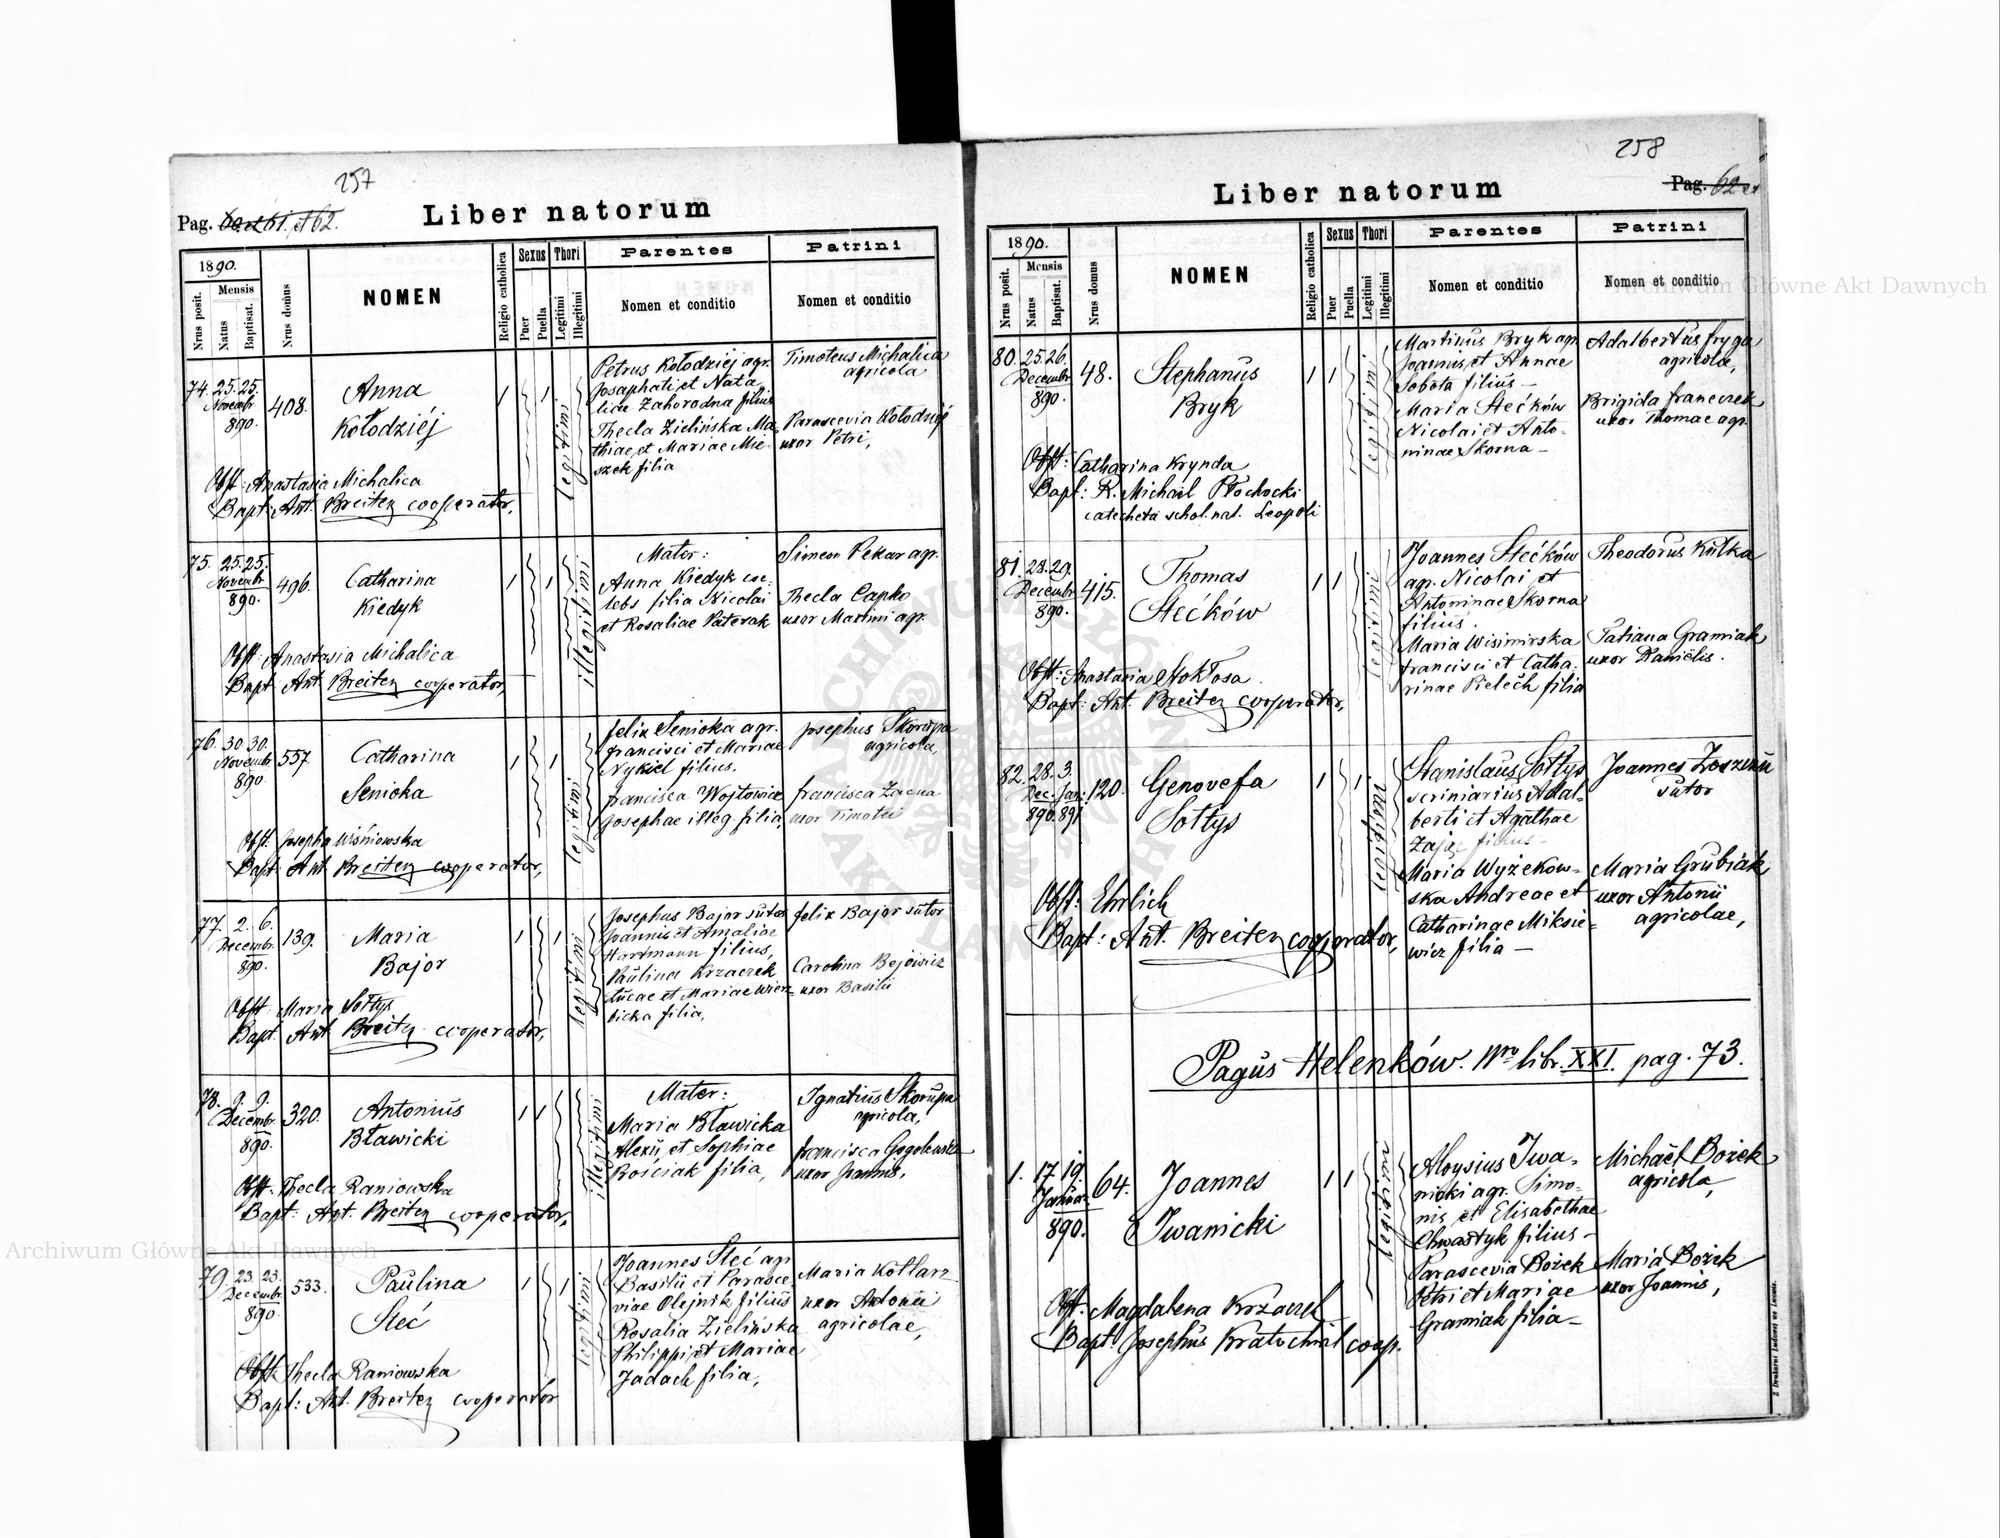 257
Pag. 60 et 61. et 62.
Liber natorum
1890.
Mensis
Nrus posit.
Natus
Baptisat.
Nrus domus
NOMEN
Religio catholica
Sexus
Puer
Puella
Thori
Legitimi
Illegitimi
Parentes
Nomen et conditio
Patrini
Nomen et conditio
74. 25. 25.
Novembr
890.
408.
Anna
Kołodziéj
1 1
legitimi
Petrus Kołodziej agr.
Josaphat et Nata
liae Zahorodna filius
Thecla Zielińska Ma
thiae et Mariae Mie-
szek filia
Timoteus Michalica
agricola
Parascevia Kołodziéj
uxor Petri,
Obst: Anastasia Michalica
Bapt: Ant. Breiten cooperator,
75. 25. 25.
Novembr
890.
496.
Catharina
Kiedyk
1 1
illegitimi
Mater:
Anna Kiedyk cae-
lebs filia Nicolai
et Rosaliae Paterak
Simeon Pekar agr.
Thecla Capko
uxor Maximi agr.
Obst: Anastasia Michalica
Bapt: Ant. Breiten cooperator,
76. 30. 30.
Novembr
890
557
Catharina
Senioka
1 1
legitimi
Felix Senioka agr.
Francisci et Mariae
Nykiel filius.
Francisca Wojtowicz
Josephae illeg. filia,
Josephus Skorupa
agricola,
Francisca Zacna
uxor Timotei
Obst: Josepha Wiśniowska
Bapt: Ant. Breiten cooperator,
77. 2. 6.
Decembr.
890.
139.
Maria
Bajor
1 1
legitimi
Josephus Bajor sutor
Joannis et Amaliae
Hartmann filius,
Paulina Krzaczek
Lucae et Mariae Wierz-
bicka filia,
Felix Bajor sutor
Carolina Bejowicz
uxor Basilii
Obst: Maria Sołtys
Bapt: Ant. Breiten cooperator,
78. 9. 9.
Decembr.
890.
320.
Antonius
Bławicki
1 1
illegitimi
Mater:
Maria Bławicka
Alexii et Sophiae
Bościak filia,
Ignatius Skorupa
agricola,
Francisca Gogolewska
uxor Joannis,
Obst: Thecla Raniowska
Bapt: Ant. Breiten cooperator,
79. 23. 23.
Decembr.
890.
533.
Paulina
Steć
1 1
legitimi
Joannes Steć agr
Basilii et Parasce-
viae Olejnik filius
Rosalia Zielińska
Philippi et Mariae
Jadach filia,
Maria Kotlarz
uxor Antonii
agricolae,
Obst: Thecla Raniowska
Bapt: Ant. Breiten cooperator
258
Pag. 62 et
Liber natorum
1890.
Mensis
Nrus posit.
Natus
Baptisat.
Nrus domus
NOMEN
Religio catholica
Sexus
Puer
Puella
Thori
Legitimi
Illegitimi
Parentes
Nomen et conditio
Patrini
Nomen et conditio
80. 25. 26.
Decembr
890.
48.
Stephanus
Bryk
1 1
legitimi
Martinus Bryk agr.
Joannis et Annae
Sobota filius –
Maria Stećków
Nicolai et Anto-
ninae Skorna –
Adalbertus Fryga
agricola,
Brigida Franczek
uxor Thomae agr.
Obst: Catharina Krynda
Bapt: R. Michael Płochocki
catecheta schol. nat. Leopoli
81. 28. 29.
Decembr
890.
415.
Thomas
Stećków
1 1
legitimi
Joannes Stećków
agr. Nicolai et
Antoninae Skorna
filius.
Maria Wisimirska
Francisci et Catha-
rinae Pielech filia
Theodorus Kulka
Tatiana Gramiak
uxor Daniëlis.
Obst: Anastasia Stokłosa.
Bapt: Ant. Breiten cooperator,
82. 28. 3.
Dec. Jan:
890. 891
120.
Genovefa
Sołtys
1 1
legitimi
Stanislaus Sołtys
scriniarius Adal-
berti et Agathae
Zając filius –
Maria Wyżekow-
ska Andreae et
Catharinae Miksie-
wicz filia –
Joannes
sutor
Maria Grubiak
uxor Antonii
agricolae,
Obst: Ehrlich
Bapt: Ant. Breiten cooperator,
Pagus Helenków. Nro libr. XXI. pag. 73.
1. 17 19.
Januar.
890.
64.
Joannes
Iwanicki
1 1
legitimi
Aloysius Iwa-
nicki agr. Simo-
nis et Elisabethae
Chwastyk filius –
Parascevia Bożek
Petri et Mariae
Gramiak filia –
Michaël Bożek
agricola,
Maria Bożek
uxor Joannis,
Obst: Magdalena Krzaczek
Bapt: Josephus Kratochwil coop.
Z Drukarni Ludowej we Lwowie.
Archiwum Główne Akt Dawnych
Archiwum Główne Akt Dawnych
ARCHIWUM GŁÓWNE AKT DAWNYCH